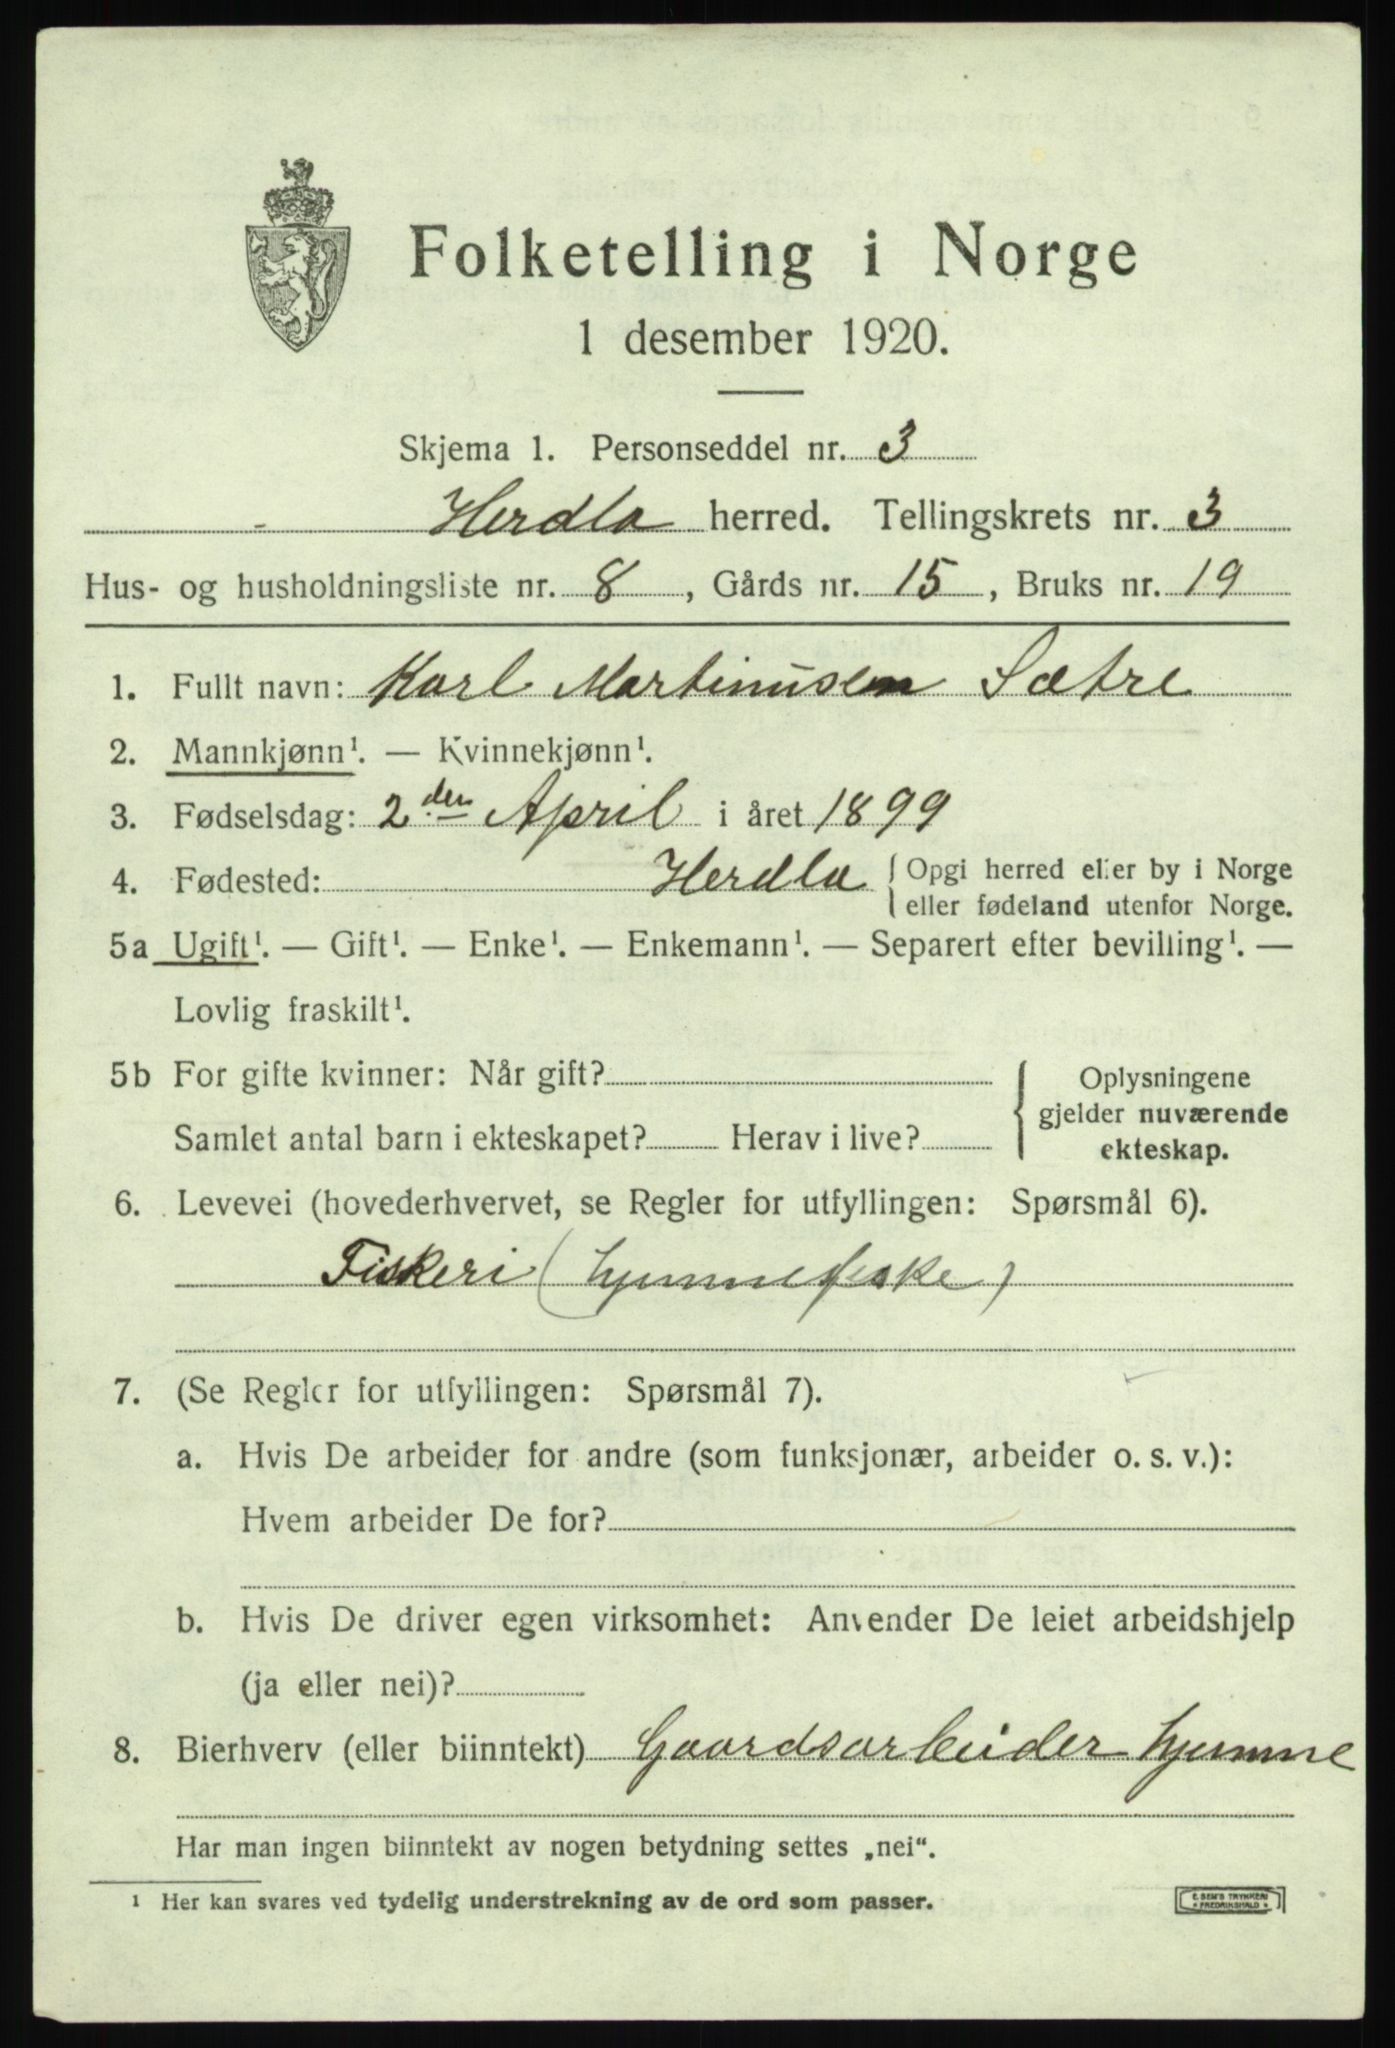 Folketelling i Norge
1 desember 1920.
Skjema 1. Personseddel nr. 3
Herdla herred. Tellingskrets nr. 3
Hus- og husholdningsliste nr. 8, Gårds nr. 15, Bruks nr. 19
1. Fullt navn: Karl Martinusen Sætre
2. Mannkjønn¹. — Kvinnekjønn¹.
3. Fødselsdag: 2den April i året 1899
4. Fødested: Herdla { Opgi herred eller by i Norge
eller fødeland utenfor Norge.
5a Ugift¹. — Gift¹. — Enke¹. — Enkemann¹. — Separert efter bevilling¹. —
Lovlig fraskilt¹.
5b For gifte kvinner: Når gift? { Oplysningene
gjelder nuværende
Samlet antal barn i ekteskapet? Herav i live?
ekteskap.
6. Levevei (hovederhvervet, se Regler for utfyllingen: Spørsmål 6).
Fiskeri (hjemmefiske)
7. (Se Regler for utfyllingen: Spørsmål 7).
a. Hvis De arbeider for andre (som funksjonær, arbeider o. s. v.):
Hvem arbeider De for?
b. Hvis De driver egen virksomhet: Anvender De leiet arbeidshjelp
(ja eller nei)?
8. Bierhverv (eller biinntekt) Gaardsarbeider hjemme
Har man ingen biinntekt av nogen betydning settes „nei“.
¹ Her kan svares ved tydelig understrekning av de ord som passer.
E. SEM'S TRYKKERI
* FREDRIKSHALD *